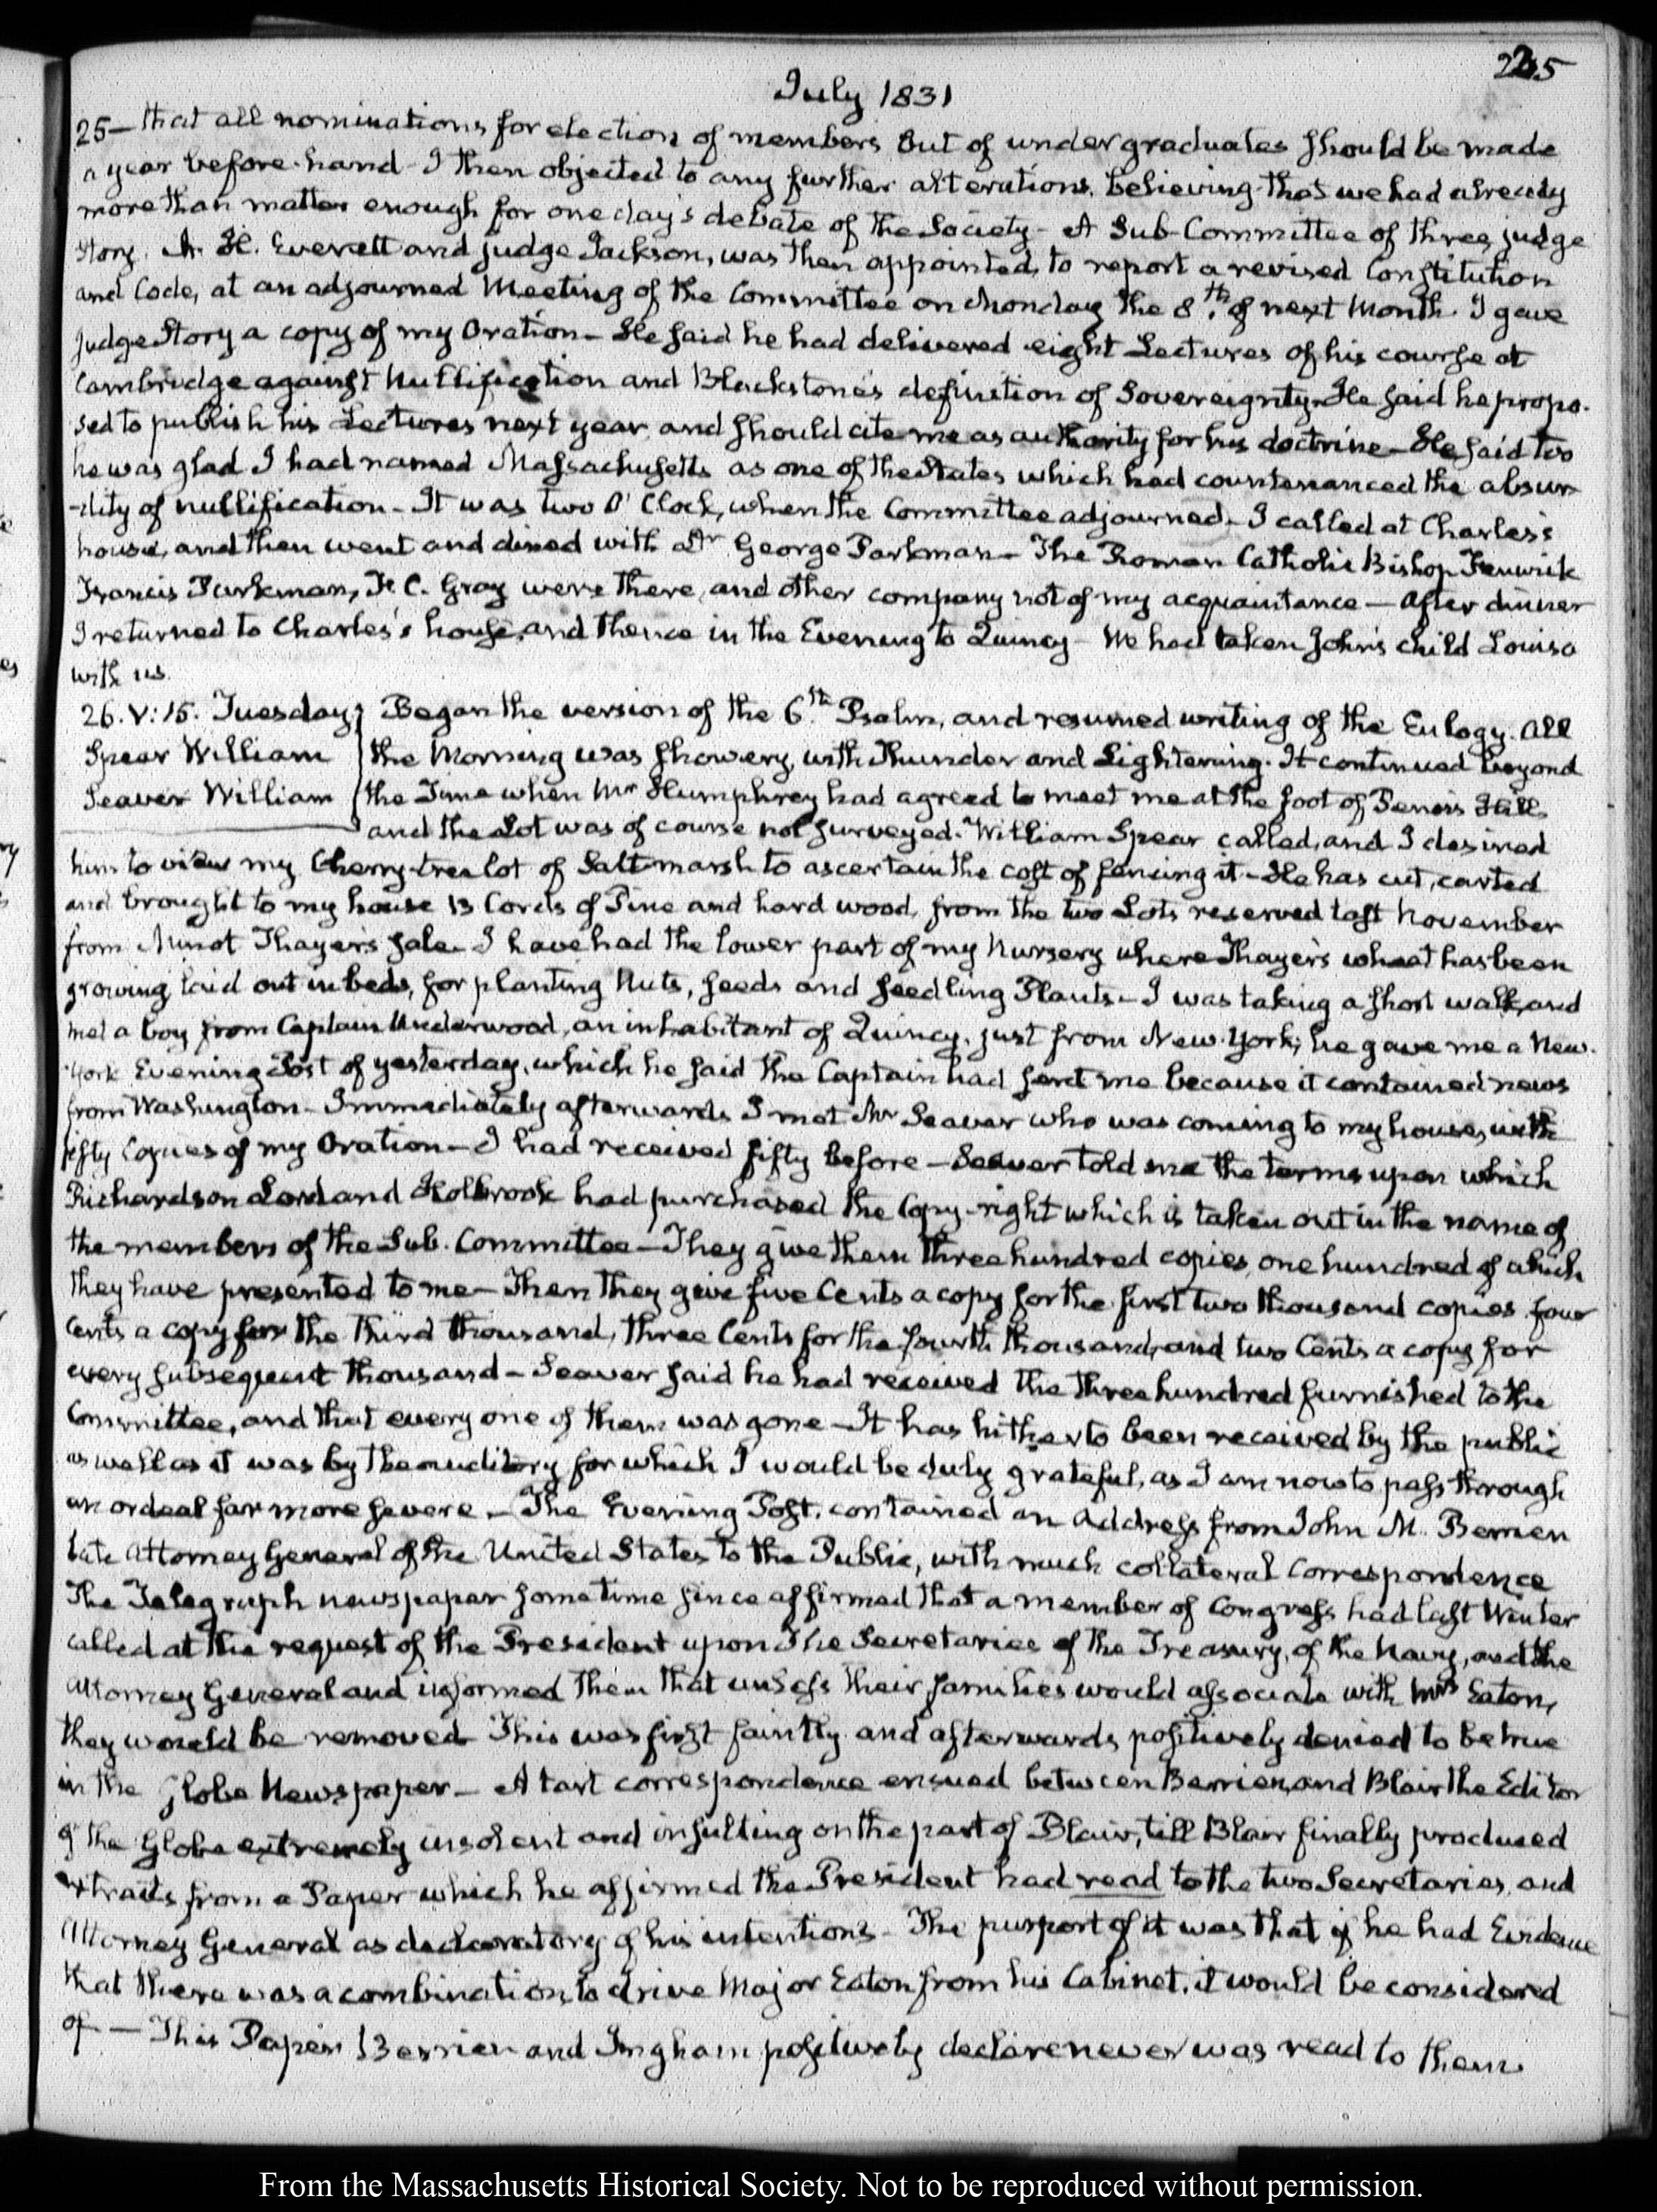 225
July 1831
25— that all nominations for election of members out of undergraduates should be made
a year before-hand - I then objected to any further alterations, believing that we had already
more than matter enough for one day's debate of the Society - A Sub-Committee of three, judge
Story, A. H. Everett and judge Jackson, was then appointed, to report a revised Constitution
and Code, at an adjourned Meeting of the Committee on Monday the 8th. of next Month. I gave
Judge Story a copy of my Oration - He said he had delivered eight Lectures of his course at
Cambridge against Nullification and Blackstone's definition of Sovereignty - He said he propo-
sed to publish his Lectures next year, and should cite me as authority for his doctrine - He said too
he was glad I had named Massachusetts as one of the States which had countenanced the absur-
-dity of nullification - It was two O'Clock, when the Committee adjourned - I called at Charles's
house, and then went and dined with Dr George Parkman - The Roman Catholic Bishop Fenwick
Francis Parkman, F. C. Gray were there, and other company not of my acquaintance — After dinner
I returned to Charles's house, and thence in the Evening to Quincy - We had taken John's child Louisa
with us.
26. V:15. Tuesday Began the version of the 6th. Psalm, and resumed writing of the Eulogy. All
Spear William the Morning was showery, with Thunder and Lightening. It continued beyond
Seaver William the Time when Mr Humphrey had agreed to meet me at the foot of Penn's Hill
and the Lot was of course not surveyed. William Spear called, and I desired
him to view my Cherry-tree lot of Salt marsh to ascertain the cost of fencing it - He has cut, carted
and brought to my house 13 Cords of Pine and hard wood, from the two Lots reserved last November
from Minot Thayer's sale - I have had the lower part of my Nursery where Thayer's wheat has been
growing laid out in beds, for planting Nuts, seeds and seedling Plants - I was taking a short walk, and
met a boy from Captain Underwood, an inhabitant of Quincy, just from New-York; he gave me a New-
York Evening Post of yesterday, which he said the Captain had sent me because it contained news
from Washington - Immediately afterwards I met Mr Seaver who was coming to my house, with
fifty Copies of my Oration - I had received fifty before - Seaver told me the terms upon which
Richardson Lord and Holbrook had purchased the Copy-right which is taken out in the name of
the members of the Sub-Committee — They give them three hundred copies, one hundred of which
they have presented to me - Then they give five Cents a copy for the first two thousand copies four
Cents a copy for the third thousand, three Cents for the fourth thousand, and two Cents a copy for
every subsequent thousand - Seaver said he had received the three hundred furnished to the
Committee, and that every one of them was gone - It has hitherto been received by the public
as well as it was by the auditory for which I would be duly grateful, as I am now to pass through
an ordeal far more severe. - The Evening Post, contained an Address from John M. Berrien
late Attorney General of the United States to the Public, with much collateral correspondence
The Telegraph newspaper some time since affirmed that a member of Congress had last Winter
called at the request of the President upon the Secretaries of the Treasury, of the Navy, and the
Attorney General and informed them that unless their families would associate with Mrs Eaton,
they would be removed - This was first faintly and afterwards positively denied to be true
in the Globe Newspaper - A tart correspondence ensued between Berrien, and Blair the Editor
of the Globe extremely insolent and insulting on the part of Blair, till Blair finally produced
extracts from a Paper which he affirmed the President had read to the two Secretaries, and
Attorney General as declaratory of his intentions - The purport of it was that if he had Evidence
that there was a combination to drive Major Eaton from his Cabinet, it would be considered
of — This Paper Berrien and Ingham positively declare never was read to them
From the Massachusetts Historical Society. Not to be reproduced without permission.